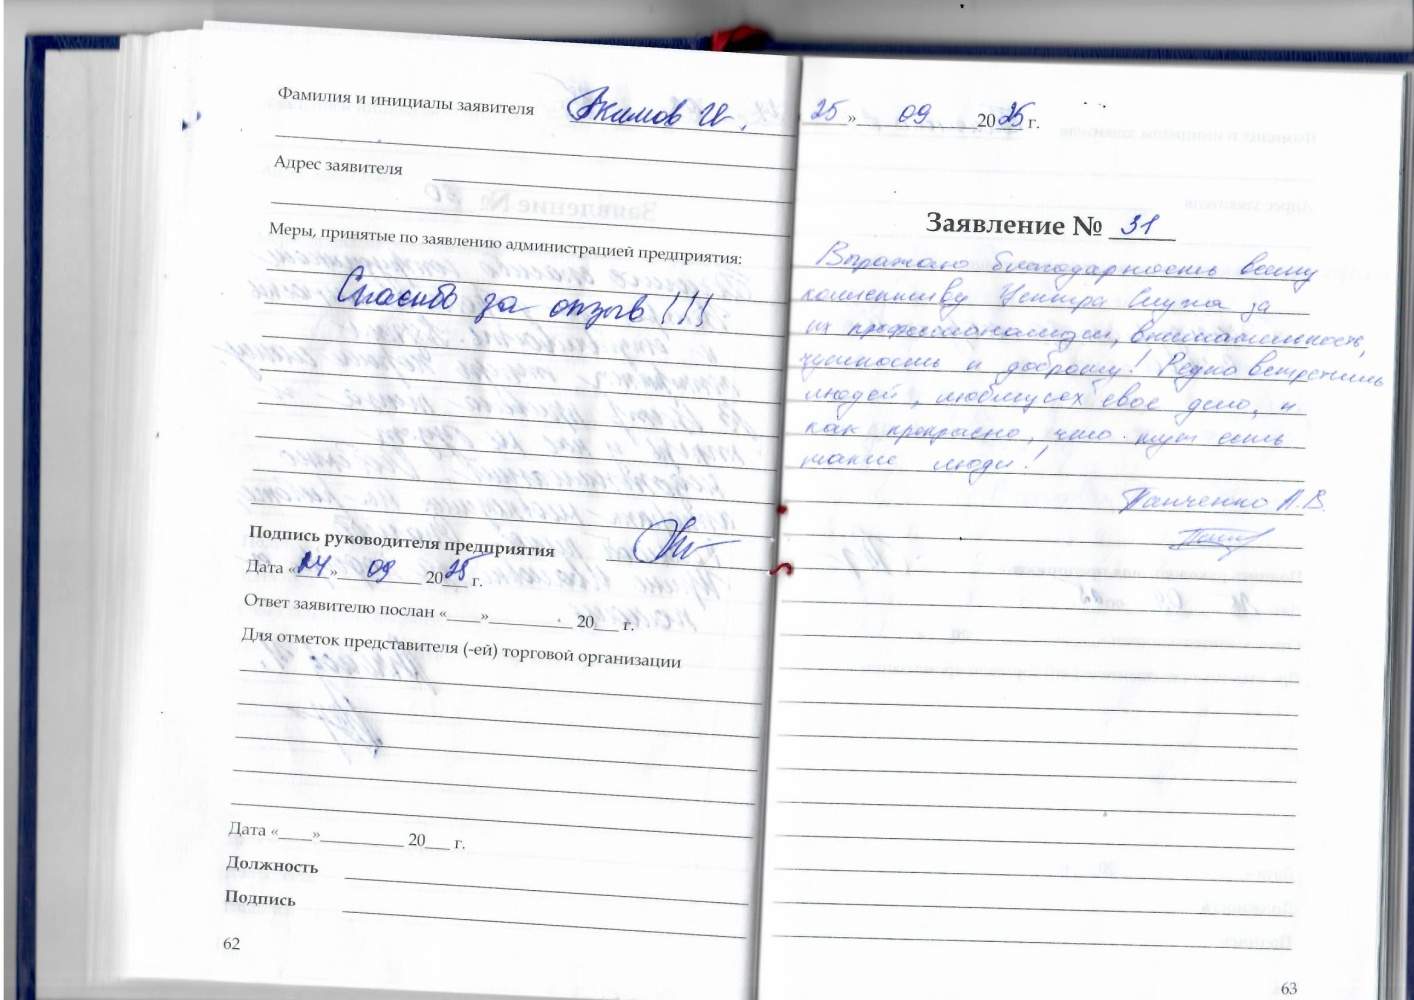 Фамилия и инициалы заявителя Акимов И.
Адрес заявителя
Меры, принятые по заявлению администрацией предприятия:
Спасибо за отзыв!!!
Подпись руководителя предприятия
Дата «24» 09 2025 г.
Ответ заявителю послан «____»__________ 20___ г.
Для отметок представителя (-ей) торговой организации
Дата «____»__________ 20___ г.
Должность
Подпись
62
25» 09 2025 г.
Заявление № 31
Выражаю благодарность всему
коллективу Центра Слуха за
их профессионализм, внимательность,
чуткость и доброту! Редко встретишь
людей, любящих свое дело, и
как прекрасно, что тут есть
такие люди!
Панченко А.В.
63